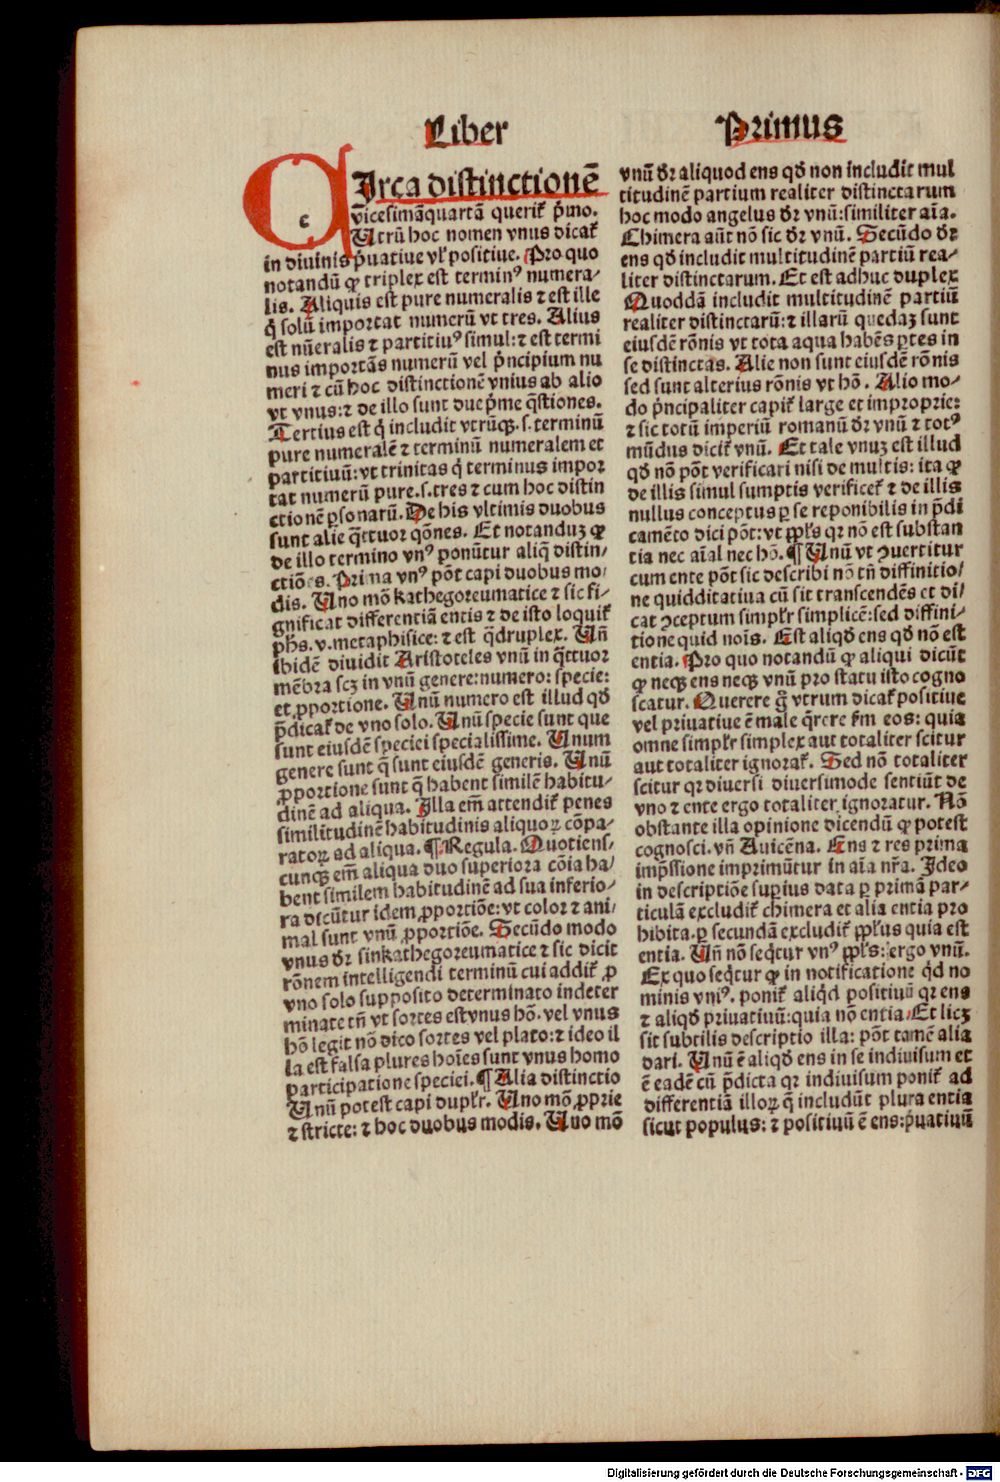 Liber Primus
CIrca distinctionē
vicesimāquartā querit᷑ p̄mo.
Utrū hoc nomen vnus dicat᷑
in diuinis p̄uatiue vl̓ positiue. Pro quo
notandū ꝙ triplex est terminꝰ numera⸗
lis. Aliquis est pure numeralis ⁊ est ille
q̇ solū importat numerū vt tres. Alius
est nūeralis ⁊ partitiuꝰ simul: ⁊ est termi
nus importās numerū vel p̄ncipium nu
meri ⁊ cū hoc distinctionē vnius ab alio
vt vnus: ⁊ de illo sunt due p̄me q̄stiones.
Tertius est q̇ includit vtrūqꝫ. s. terminū
pure numeralē ⁊ terminū numeralem et
partitiuū: vt trinitas q̇ terminus impor
tat numerū pure. s. tres ⁊ cum hoc distin
ctionē ꝑsonarū. De his vltimis duobus
sunt alie q̄ttuor q̄ōnes. Et notanduꝫ ꝙ
de illo termino vnꝰ ponūtur aliq̄ distin⸗
ctiōes. Prima vnꝰ pōt capi duobus mo⸗
dis. Uno mō kathegoreumatice ⁊ sic si⸗
gnificat differentiā entis ⁊ de isto loquit᷑
ph̄s. v. metaphisice: ⁊ est q̄druplex. Uñ
ibidē diuidit Aristoteles vnū in q̄ttuor
mēbra scꝫ in vnū genere: numero: specie:
et ꝓportione. Unū numero est illud qd̄
p̄dicat᷑ de vno solo. Unū specie sunt que
sunt eiusdē speciei specialissime. Unum
genere sunt q̄ sunt eiusdē generis. Unū
ꝓportione sunt q̄ habent similē habitu⸗
dinē ad aliqua. Illa em̄ attendit᷑ penes
similitudinē habitudinis aliquoꝝ cōpa⸗
ratoꝝ ad aliqua. ¶ Regula. Quotiens⸗
cunqꝫ em̄ aliqua duo superiora cōia ha⸗
bent similem habitudinē ad sua inferio⸗
ra dicūtur idem ꝓportiōe: vt color ⁊ ani⸗
mal sunt vnū ꝓportiōe. Secūdo modo
vnus dr̄ sinkathegoreumatice ⁊ sic dicit
rōnem intelligendi terminū cui addit᷑ ꝓ
vno solo supposito determinato indeter
minate tñ vt sortes est vnus hō. vel vnus
hō legit nō dico sortes vel plato: ⁊ ideo il
la est falsa plures hoīes sunt vnus homo
participatione speciei. ¶ Alia distinctio
Unū potest capi dupl̓r. Uno mō ꝓprie
⁊ stricte: ⁊ hoc duobus modis. Uno mō
vnū dr̄ aliquod ens qd̄ non includit mul
titudinē partium realiter distinctarum
hoc modo angelus dr̄ vnū: similiter aīa.
Chimera aūt nō sic dr̄ vnū. Secūdo dr̄
ens qd̄ includit multitudinē partiū rea⸗
liter distinctarum. Et est adhuc duplex
Quoddā includit multitudinē partiū
realiter distinctarū: ⁊ illarū quedaꝫ sunt
eiusdē rōnis vt tota aqua habēs ꝑtes in
se distinctas. Alie non sunt eiusdē rōnis
sed sunt alterius rōnis vt hō. Alio mo⸗
do p̄ncipaliter capit᷑ large et improprie:
⁊ sic totū imperiū romanū dr̄ vnū ⁊ totꝰ
mūdus dicit᷑ vnū. Et tale vnuꝫ est illud
qd̄ nō pōt verificari nisi de multis: ita ꝙ
de illis simul sumptis verificet᷑ ⁊ de illis
nullus conceptus ꝑ se reponibilis in p̄di
camēto dici pōt: vt ppl̓s qꝛ nō est substan
tia nec aīal nec hō. ¶ Unū vt ꝯuertitur
cum ente pōt sic describi nō tñ diffinitio⸗
ne quidditatiua cū sit transcendēs et di⸗
cat ꝯceptum simpl̓r simplicē: sed diffini⸗
tione quid nois. Est aliqd̄ ens qd̄ nō est
entia. Pro quo notandū ꝙ aliqui dicūt
ꝙ neqꝫ ens neqꝫ vnū pro statu isto cogno
scatur. Querere g̊ vtrum dicat᷑ positiue
vel priuatiue ē male q̄rere s̄m eos: quia
omne simpl̓r simplex aut totaliter scitur
aut totaliter ignorat᷑. Sed nō totaliter
scitur qꝛ diuersi diuersimode sentiūt de
vno ⁊ ente ergo totaliter ignoratur. Nō
obstante illa opinione dicendū ꝙ potest
cognosci. vñ Auicēna. Ens ⁊ res prima
imp̄ssione imprimūtur in aīa nr̄a. Ideo
in descriptiōe superius data ꝑ primā par⸗
ticulā excludit᷑ chimera et alia entia pro
hibita. ꝑ secundā excludit᷑ ppl̓us quia est
entia. Uñ nō seq̄tur vnꝰ ppl̓s: ergo vnū.
Ex quo seq̄tur ꝙ in notificatione q̇d no
minis vniꝰ. ponit᷑ aliq̇d positiuū qꝛ ens
⁊ aliqd̄ priuatiuū: quia nō entia. Et licꝫ
sit subtilis descriptio illa: pōt tamē alia
dari. Unū ē aliqd̄ ens in se indiuisum et
ē eadē cū p̄dicta qꝛ indiuisum ponit᷑ ad
differentiā illoꝝ q̄ includūt plura entia
sicut populus: ⁊ positiuū ē ens: p̄uatiuū
Digitalisierung gefördert durch die Deutsche Forschungsgemeinschaft - DFG